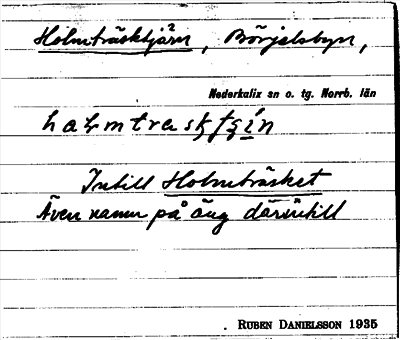 Holmträsktjärn, Börjelsbyn,
Nederkalix sn o. tg. Norrb. län
Intill Holmträsket
Även namn på äng därintill
RUBEN DANIELSSON 1935